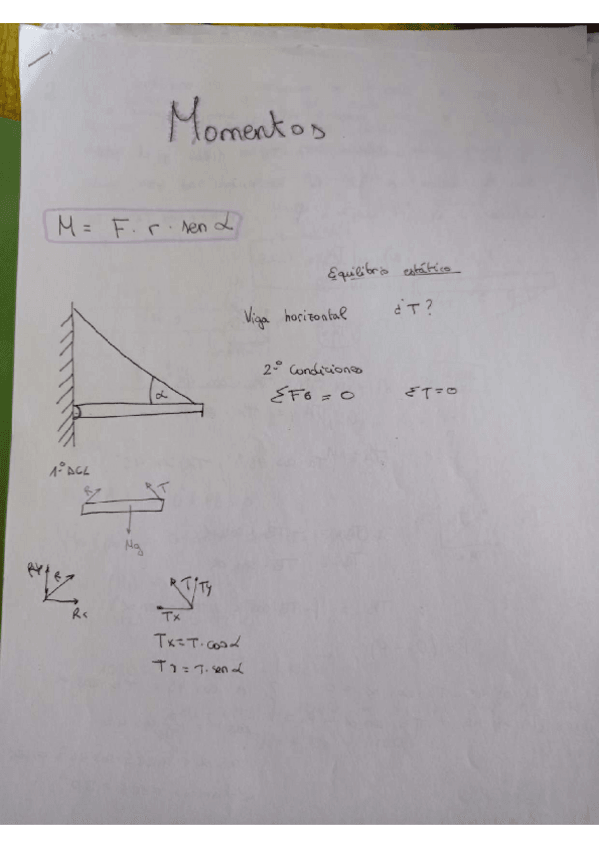 Momentos
M = F. r. sen α
Equilibrio estático
Viga horizontal ¿T?
2º Condiciones
α
ΣF6 = 0 ΣT=0
1º DCL
R T
Mg
Ry R T Ty
Rx Tx
Tx=T.cosα
Ty=T.senα